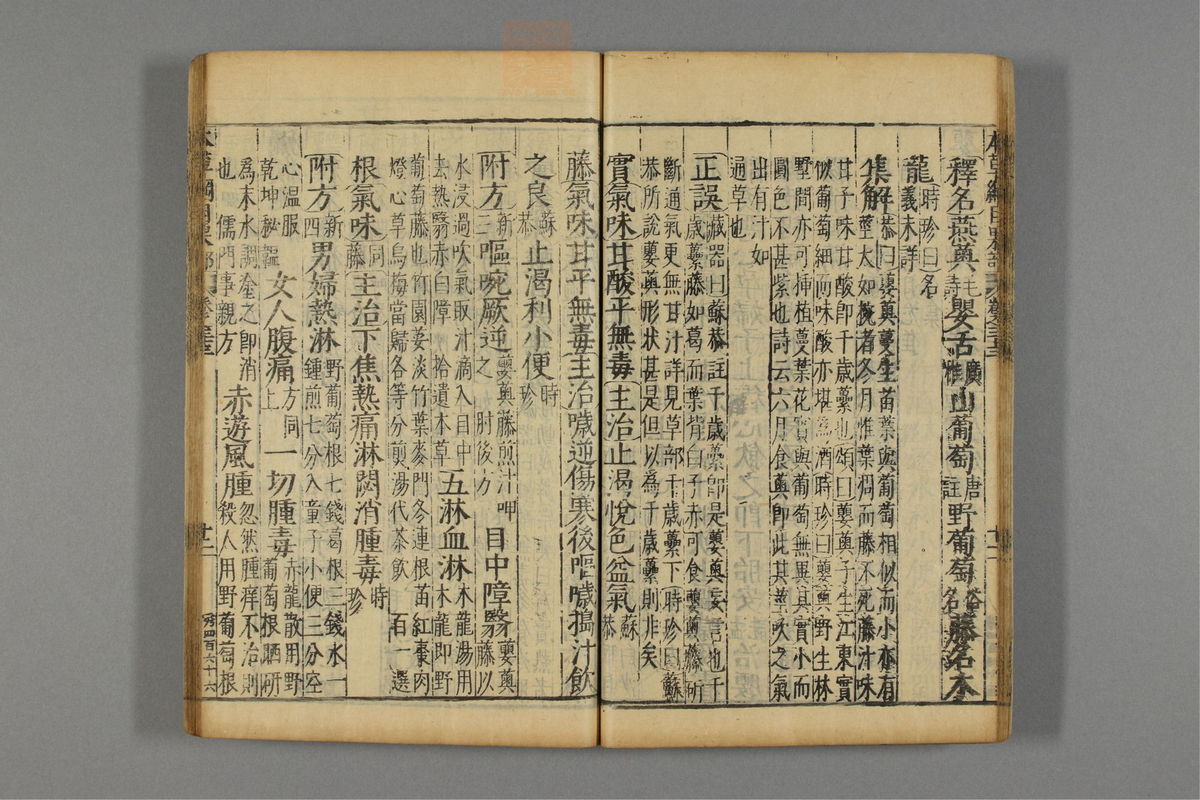 釋名燕薁毛詩嬰舌廣雅山葡萄唐註野葡萄俗名藤名木
龍時珍曰名義未詳
集解恭曰蘡薁蔓生苗葉與葡萄相似而小亦有
莖大如椀者冬月惟葉凋而藤不死藤汁味
甘子味甘酸即千歲虆也頌曰蘡薁子生江東實
似葡萄細而味酸亦堪為酒時珍曰蘡薁野生林
墅間亦可挿植蔓葉花實與葡萄無異其實小而
圓色不甚紫也詩云六月食薁即此其莖吹之氣
出有汁如
通草也
正誤藏器曰蘇恭註千歲虆即是蘡薁妄言也千
歲虆藤如葛而葉背白子赤可食蘡薁藤斫
斷通氣更無甘汁詳見草部千歲虆下時珍曰蘇
恭所說蘡薁形狀甚是但以為千歲虆則非矣
實氣味甘酸平無毒主治止渴悅色益氣蘇恭
藤氣味甘平無毒主治噦逆傷寒後嘔噦搗汁飲
之良蘇恭止渴利小便時珍
附方新三嘔啘厥逆蘡薁藤煎汁呷之肘後方目中障翳蘡薁藤以
水浸過吹氣取汁滴入目中
去熱翳赤白障拾遺本草五淋血淋木龍湯用木龍即野
葡萄藤也竹園荽淡竹葉麥門冬連根苗紅棗肉
燈心草烏梅當歸各等分煎湯代茶飲百一選
根氣味同藤主治下焦熱痛淋閟消腫毒時珍
附方新四男婦熱淋野葡萄根七錢葛根三錢水一
鍾煎七分入童子小便三分空
心溫服
乾坤秘韞女人腹痛方同上一切腫毒赤龍散用野葡萄根晒研
為末水調塗之即消
也儒門事親方赤遊風腫忽然腫痒不治則殺人用野葡萄根
本草綱目果部
卷三十三
廿二